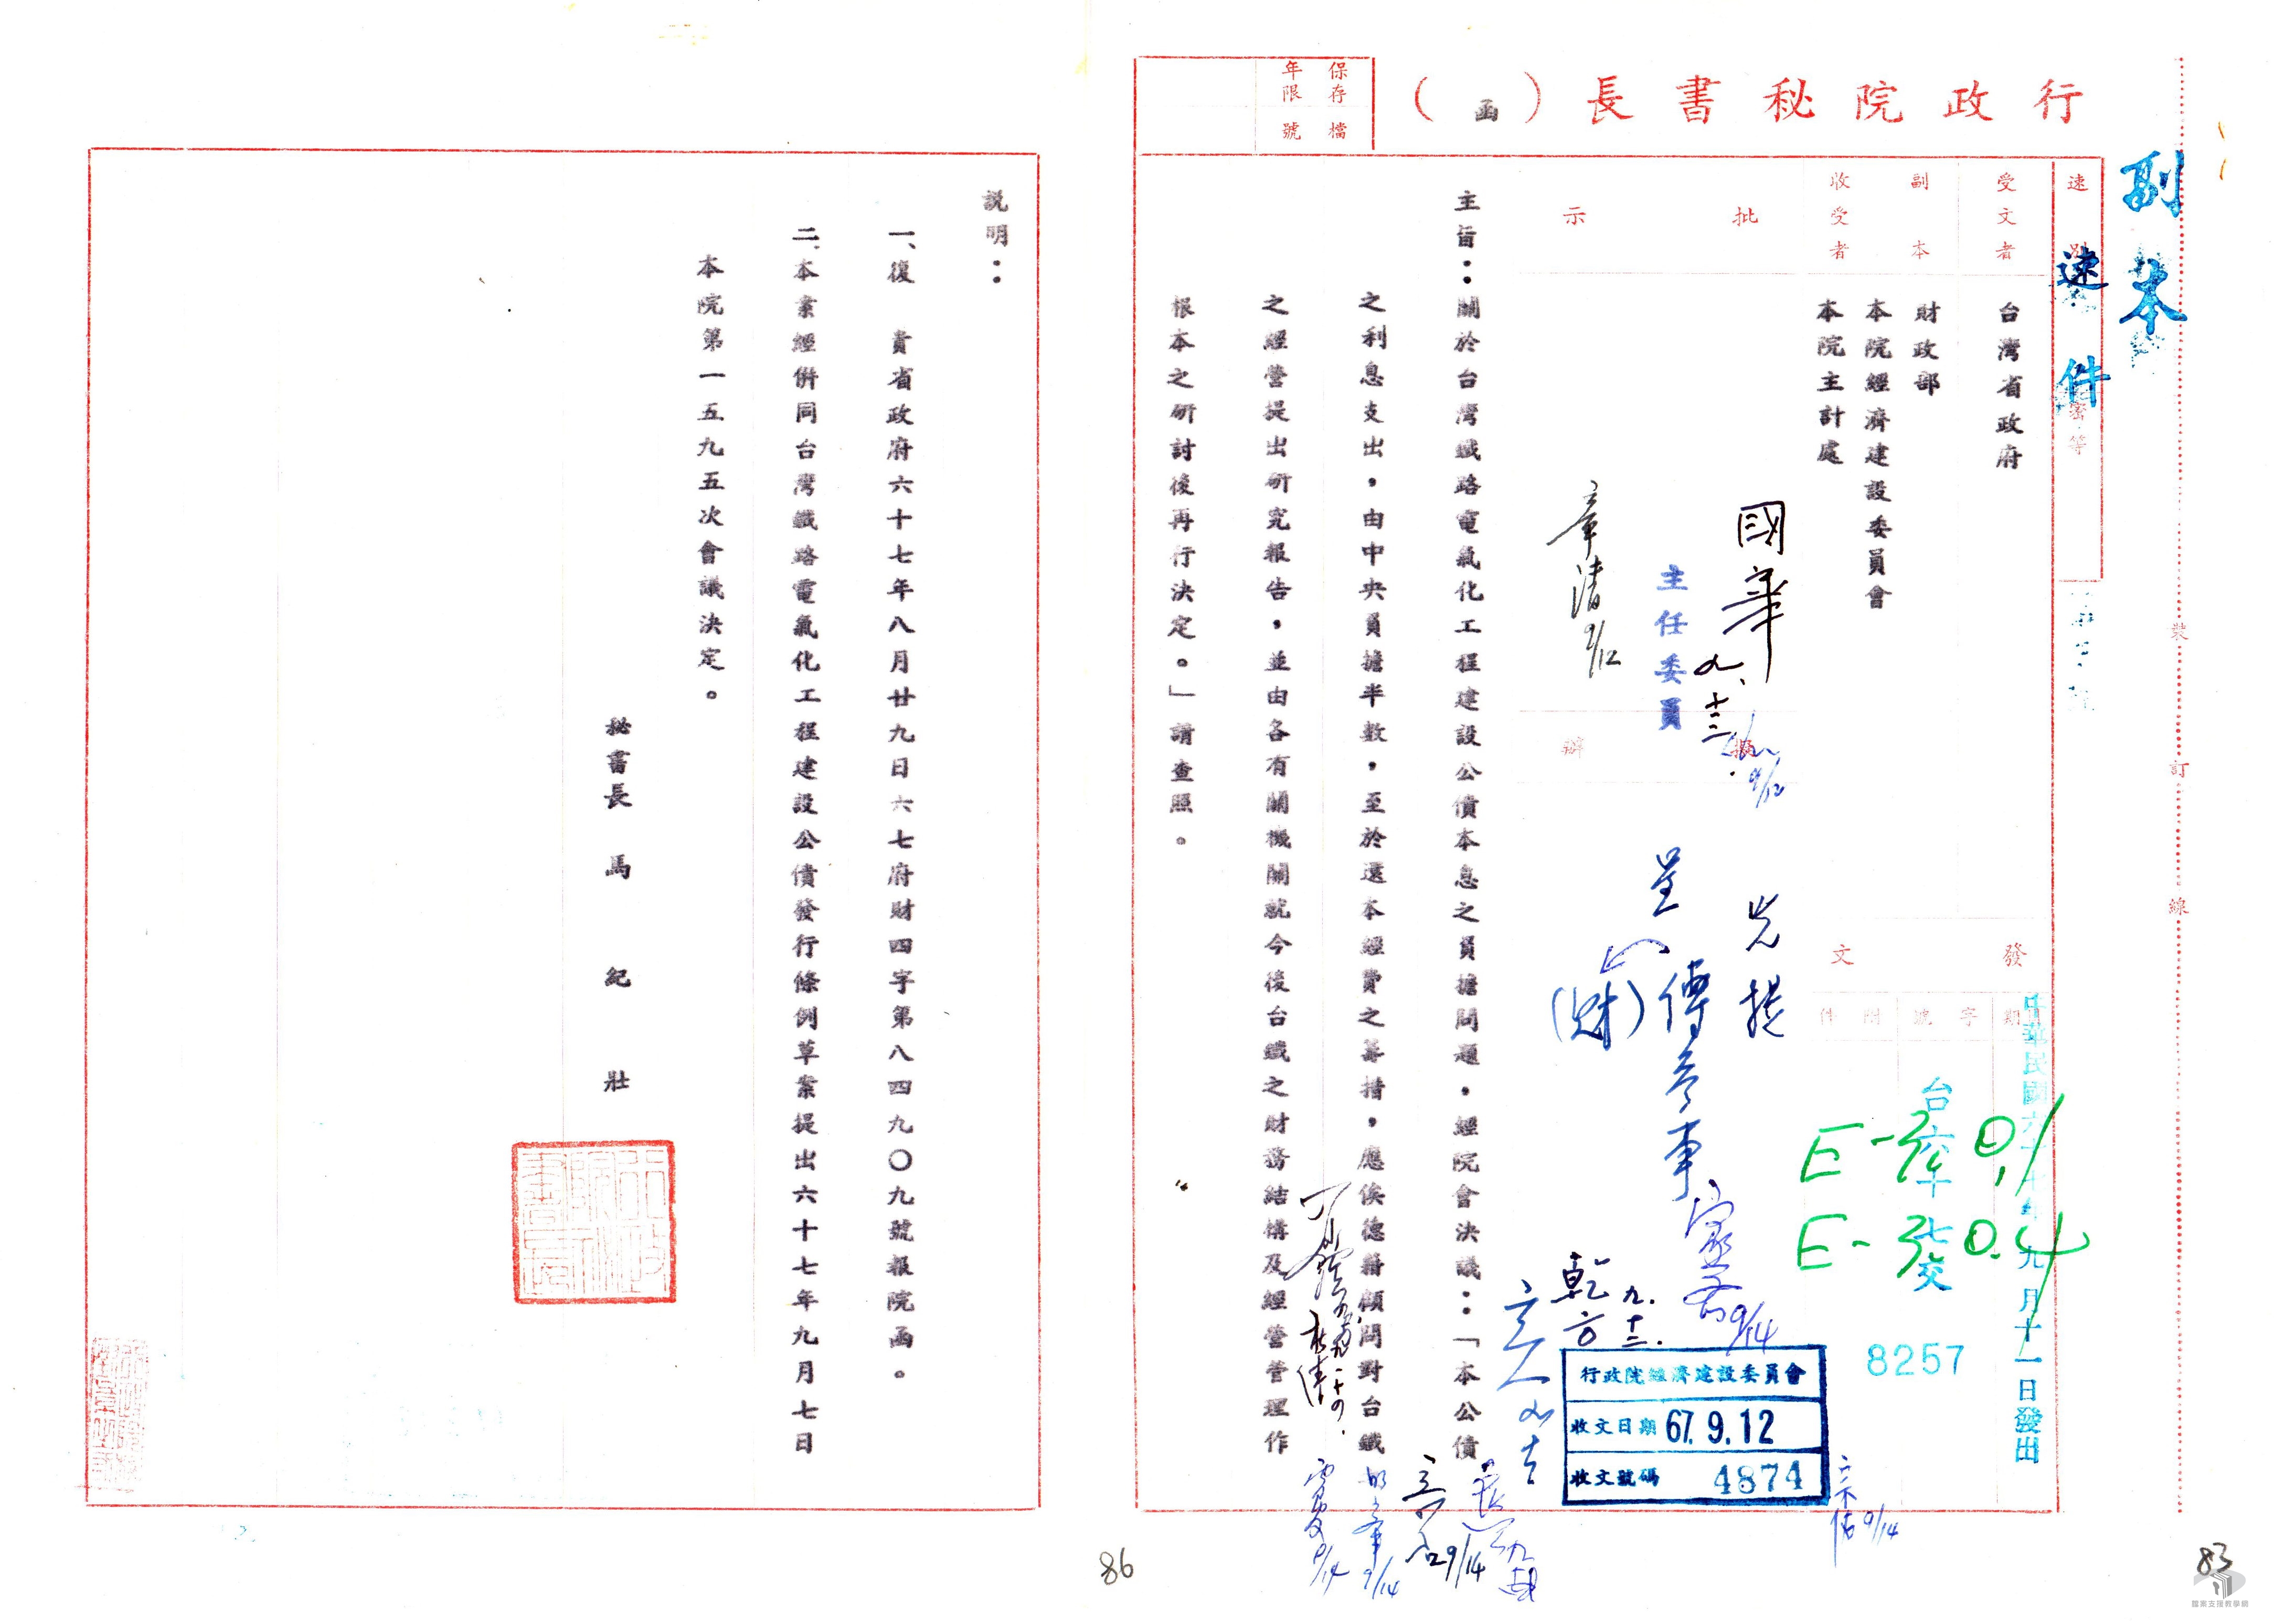 副本
行政院秘書長（函）
保存年限
檔號
速別
速件
密等
受文者
台灣省政府
副本收受者
財政部
本院經濟建設委員會
本院主計處
批示
擬辦
發文
日期
字號
附件
中華民國六十七年九月十一日發出
台六十七交
8257
E-3 0.1
E-3 0.4
國華
九、十三
主任委員
章清 9/12
9/12
先提
呈
傅參事
(財)
9/14
乾方 九.十二.
行政院經濟建設委員會
收文日期 67.9.12
收文號碼 4874
主旨：關於台灣鐵路電氣化工程建設公債本息之負擔問題，經院會決議：「本公債
之利息支出，由中央負擔半數，至於還本經費之籌措，應俟德籍顧問對台鐵
之經營提出研究報告，並由各有關機關就今後台鐵之財務結構及經營管理作
根本之研討後再行決定。」請查照。
9/14
9/14
9/14
9/14
裝
訂
線
說明：
一、復　貴省政府六十七年八月廿九日六七府財四字第八四九〇九號報院函。
二、本案經併同台灣鐵路電氣化工程建設公債發行條例草案提出六十七年九月七日
本院第一五九五次會議決定。
秘書長　馬　紀　壯
86
83
檔案支援教學網